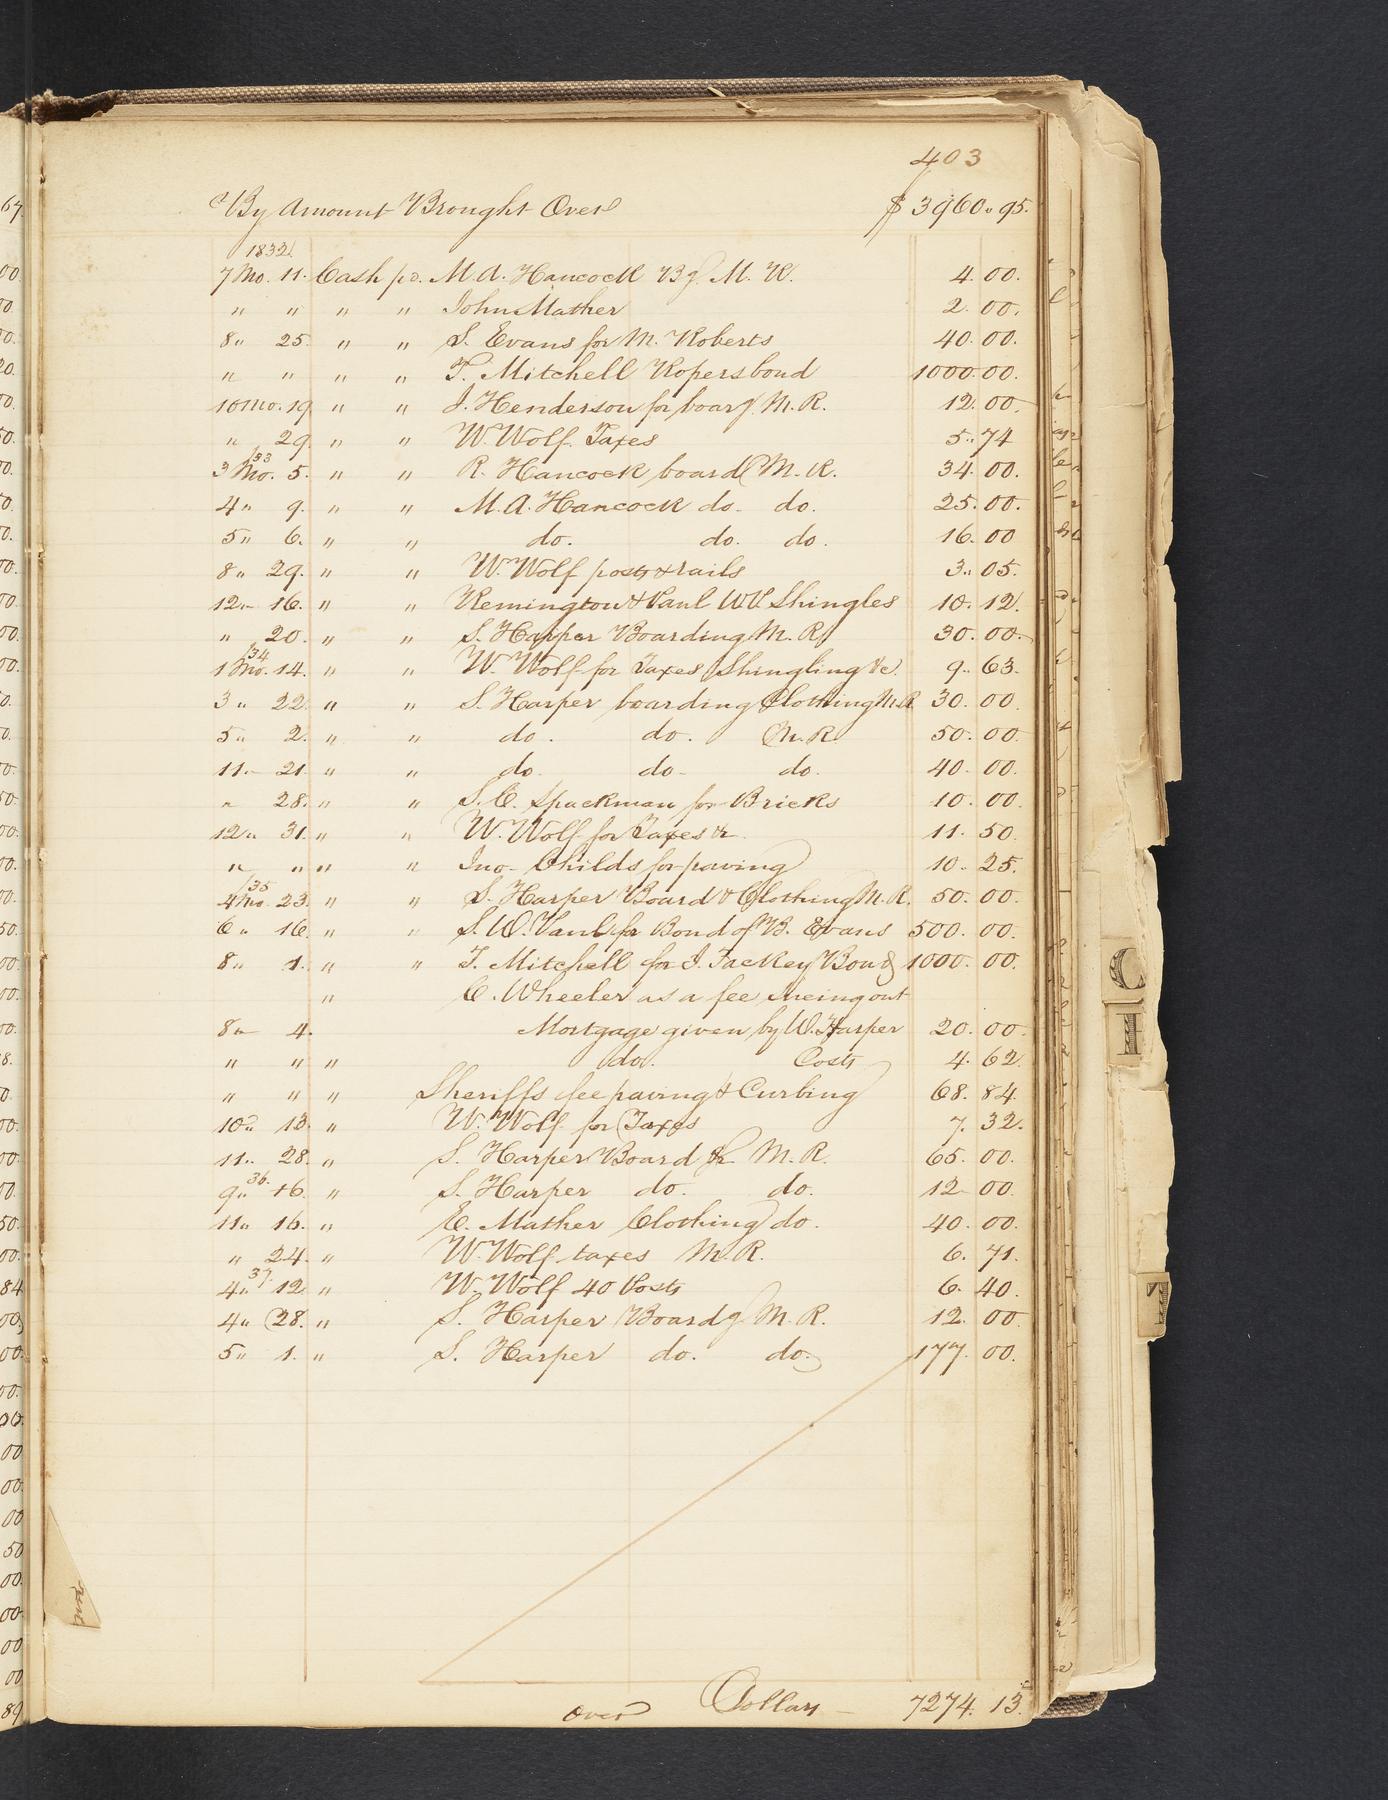 403
By Amount Brought Over $3960.95.
1832.
7 Mo. 11. Cash pd. M. A. Hancock Bg. M. R. 4.00.
" " " " John Mather 2.00.
8 " 25. " " S. Evans for M. Roberts 40.00.
" " " " T. Mitchell Ropers bond 1000.00.
10 Mo. 19 " " J. Henderson for boarg M. R. 12.00.
" 29. " " W. Wolf Taxes 5.74
/33
3 Mo. 5. " " R. Hancock board M. R. 34.00.
4 " 9. " " M. A. Hancock do. do. 25.00.
5 " 6. " " do. do. do. 16.00
8 " 29. " " W. Wolf posts & rails 3.05.
12 " 16. " " Remington & Paul Shingles 10.12.
" 20. " " S. Harper Boarding M. R. 30.00.
/34
1 Mo. 14. " " W. Wolf for Taxes Shingling &c 9.63.
3 " 22. " " S. Harper boarding Clothing M. R 30.00.
5 " 2. " " do. do. M. R. 50.00.
11. " 21. " " do. do. do. 40.00.
" 28. " " S. C. Spackman for Bricks 10.00.
12 " 31. " " W. Wolf for Taxes & 11.50.
" " " " Jno. Childs for paving 10.25.
/35
4 Mo. 23. " " S. Harper Board & Clothing M. R. 50.00.
6 " 16. " " S. W. Paul for Bond of B. Evans 500.00.
8 " 1. " " T. Mitchell for J. Jackey Bond 1000.00.
" C. Wheeler as a fee sueing out
8 " 4. Mortgage given by W. Harper 20.00.
" " " do. Costs 4.62.
" " " Sheriffs fee paving & Curbing 68.84.
10 " 13. " W. Wolf for Taxes 7.32.
11. " 28. " S. Harper Board & M. R. 65.00.
36.
9 " 16. " S. Harper do. do. 12.00.
11 " 16. " E. Mather Clothing do. 40.00.
" 24. " W. Wolf taxes M. R. 6.71.
37.
4 " 12. " W. Wolf 40 Posts 6.40.
4 " 28. " S. Harper Boardg M. R. 12.00.
5 " 1. " S. Harper do. do. 177.00.
Over Dollars 7274.13
C
I
T